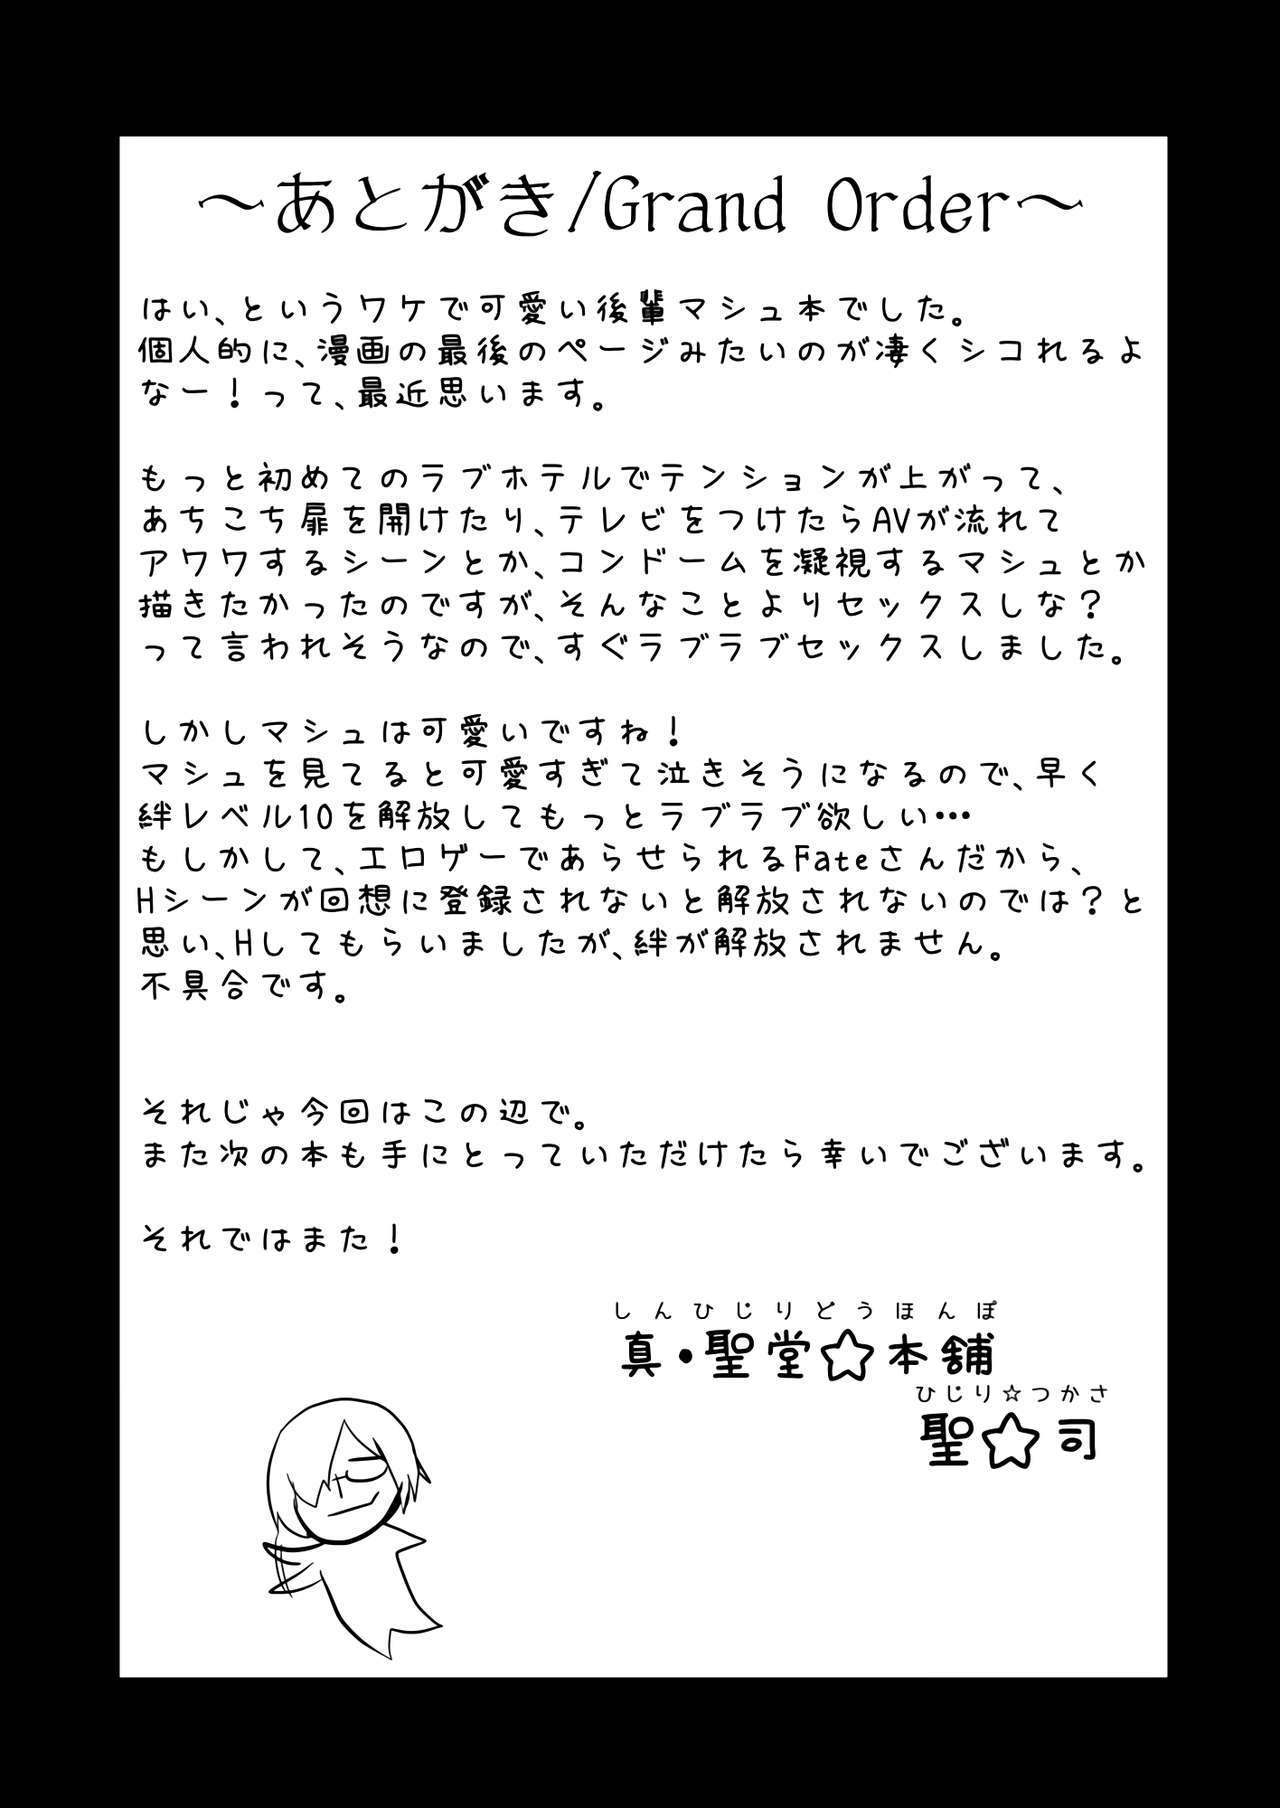 ～あとがき/Grand Order～
はい、というワケで可愛い後輩マシュ本でした。
個人的に、漫画の最後のページみたいのが凄くシコれるよ
なー！って、最近思います。
もっと初めてのラブホテルでテンションが上がって、
あちこち扉を開けたり、テレビをつけたらAVが流れて
アワワするシーンとか、コンドームを凝視するマシュとか
描きたかったのですが、そんなことよりセックスしな？
って言われそうなので、すぐラブラブセックスしました。
しかしマシュは可愛いですね！
マシュを見てると可愛すぎて泣きそうになるので、早く
絆レベル10を解放してもっとラブラブ欲しい…
もしかして、エロゲーであらせられるFateさんだから、
Hシーンが回想に登録されないと解放されないのでは？と
思い、Hしてもらいましたが、絆が解放されません。
不具合です。
それじゃ今回はこの辺で。
また次の本も手にとっていただけたら幸いでございます。
それではまた！
しんひじりどうほんぽ
真・聖堂☆本舗
ひじり☆つかさ
聖☆司